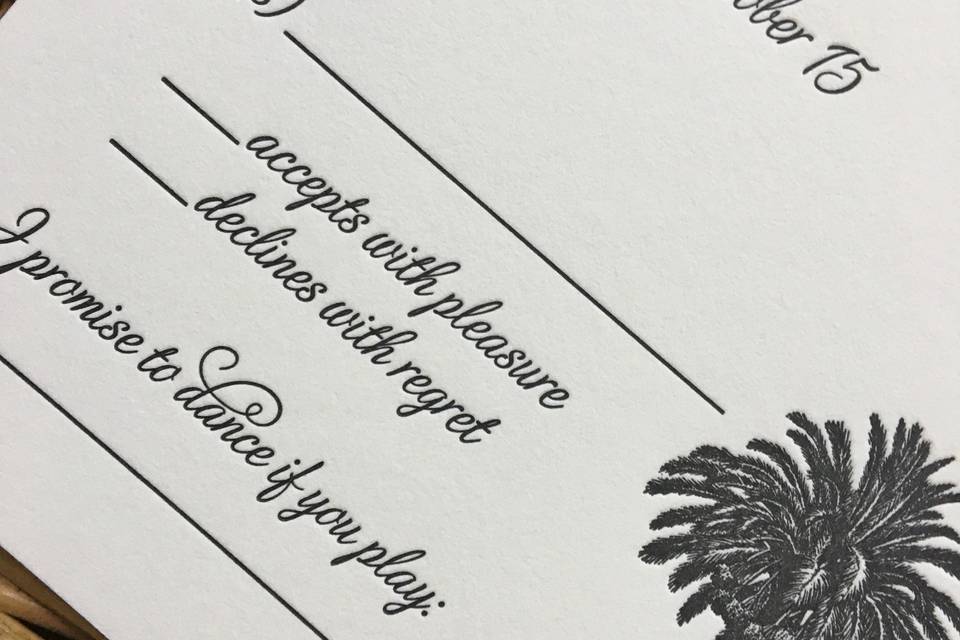 15
accepts with pleasure
declines with regret
I promise to dance if you play: